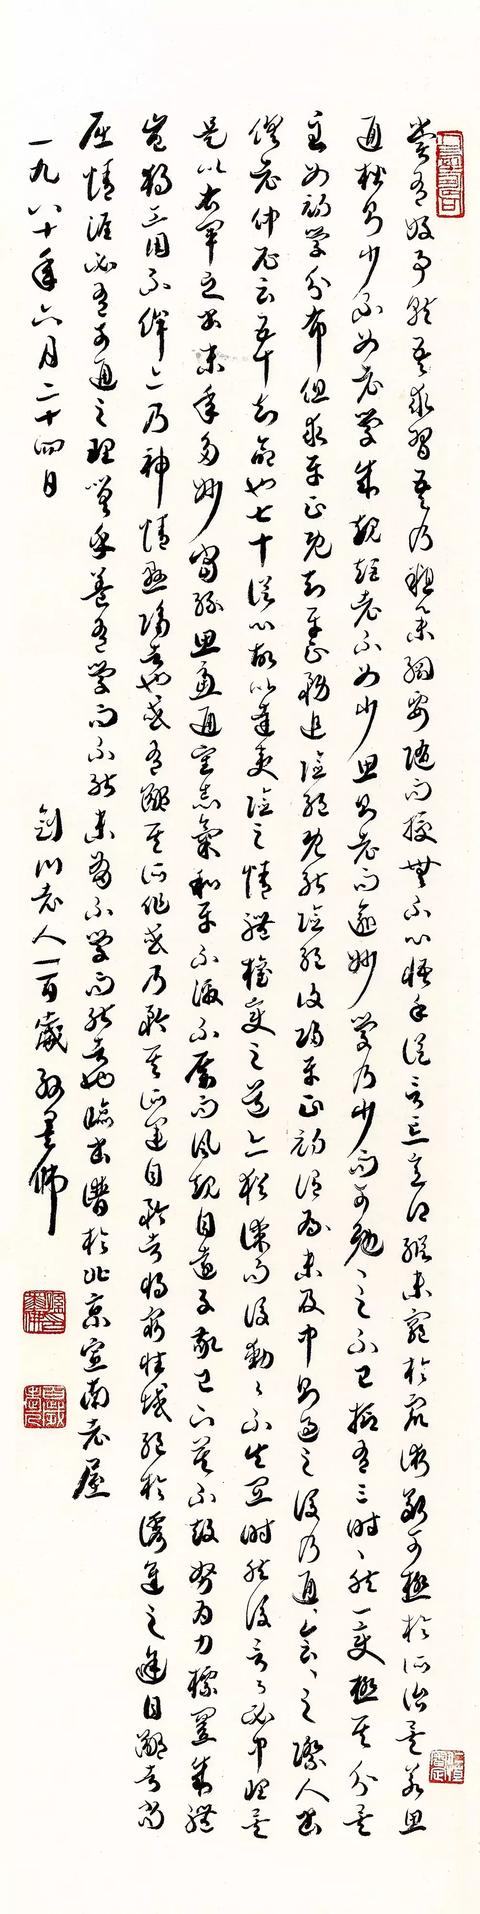 嘗有好事就吾求習吾乃粗舉綱要隨而授無不心悟手從言忘意得縱未窮於眾術斷可極於所詣矣若思
通楷則少不如老學成規矩老不如少思則老而逾妙學乃少而可勉々之不已抑有三時々然一變極其分矣
至如初學分布但求平正既知平正務追險絕既能險絕復歸平正初謂為未及中則過之後乃通々會々之際人書
俱老仲尼云五十知命也七十從心故以達夷險之情體權變之道亦猶謀而後動々不失宜時然後言々必中理矣
是以右軍之書末年多妙當緣思慮通審志氣和平不激不厲而風規自遠子敬已下莫不鼓努為力標置成體
豈獨工用不侔亦乃神情懸隔者也或有鄙其所作或乃矜其所運自矜者將窮性域絕於誘進之途自鄙者尚
屈情涯必有可通之理嗟乎蓋有學而不能未有不學而能者也臨書譜於北京宣南老屋
一九八十年六月二十四日
劍川老人一百歲孫墨佛